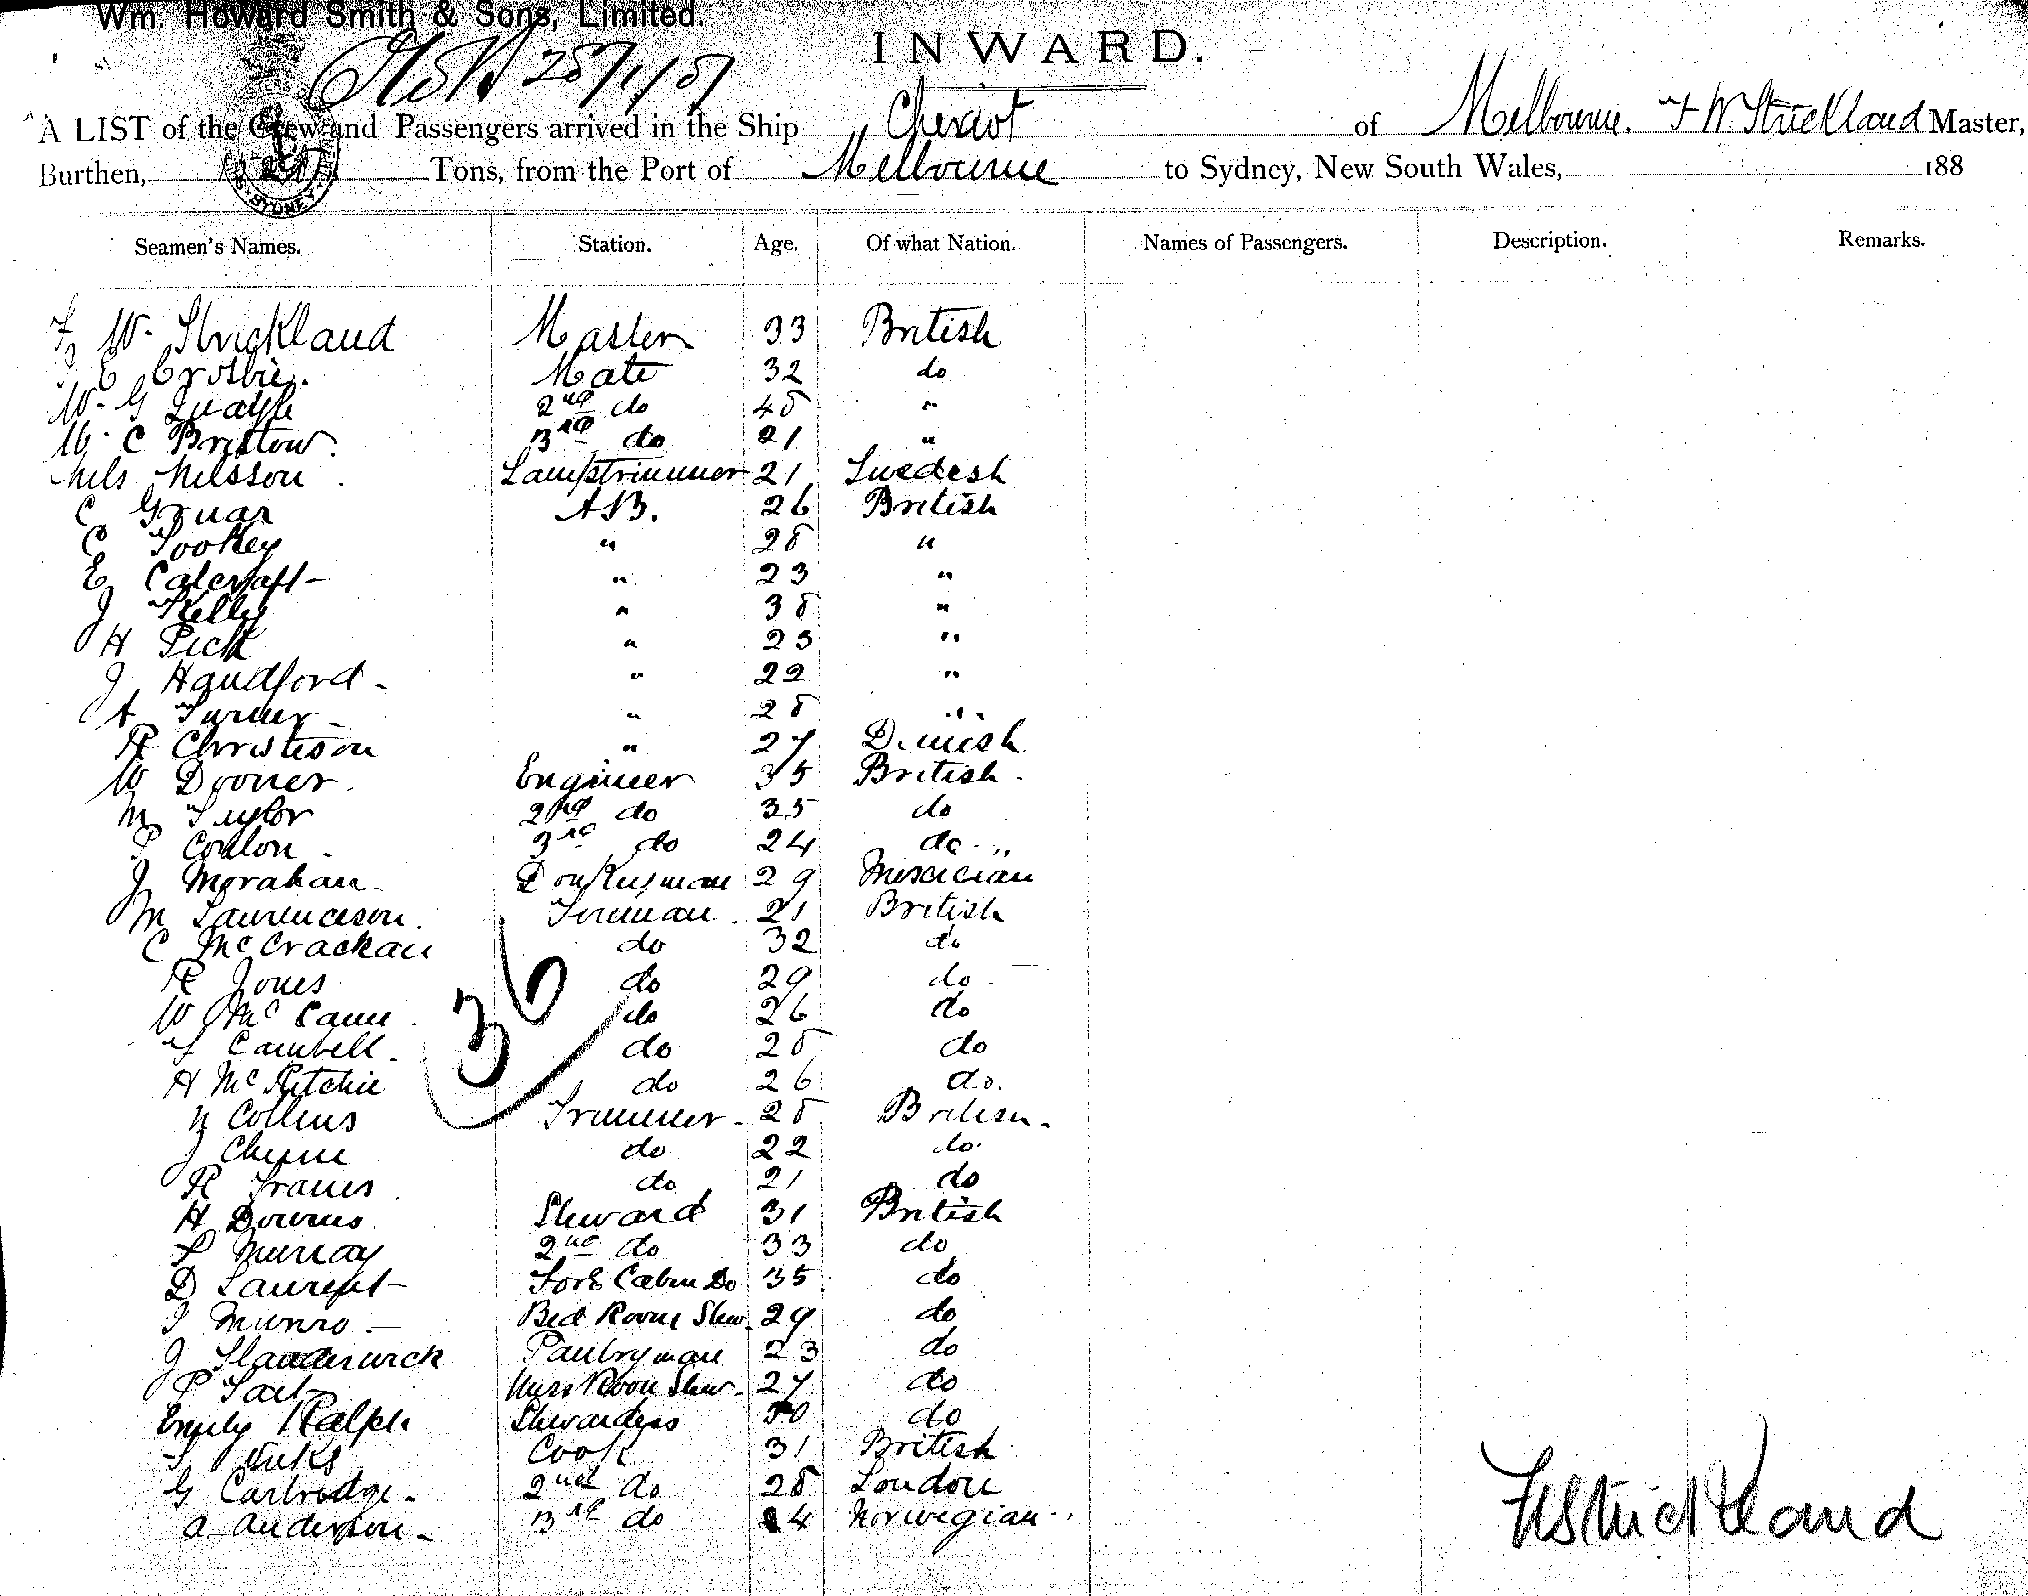 Wm. Howard Smith & Sons, Limited.
INWARD.
A LIST of the Crew and Passengers arrived in the Ship Cheviot of Melbourne. F W Strickland Master,
Burthen, Tons, from the Port of Melbourne to Sydney, New South Wales, 188
Seamen's Names. Station. Age. Of what Nation. Names of Passengers. Description. Remarks.
F W. Strickland Master 33 British
E Crosbie. Mate 32 do
W. G Quayle 2nd do 48 "
W. C Bristow. 3rd do 21 "
Nils Nilsson. Lamptrimmer 21 Swedesh
C Gruar A B. 26 British
C Tookey " 28 "
E Calcraft " 23 "
J Kelly " 38 "
H Pick " 23 "
J Handford - " 22 "
A Turner - " 28 "
R Christeson " 27 Dinish
W Dooner. Engineer 35 British.
Taylor 2nd do 35 do
P Conlon - 3rd do 24 do
J Morahan Donkeyman 29
M Laurenceson. Fireman 21 British
C McCrackan do 32 do
R Jones do 29 do
W McCann do 26 do
Cambell - do 28 do
H McRitchie do 26 do.
36
Collins Trimmer - 28 British -
J Cheyne do 22 do
R Francis do 21 do
H Downes Steward 31 British
Murray 2nd do 33 do
D Laurent Fore Cabin Do 35 do
J Munro Bed Room Stew. 29 do
J Slanderwick Pantryman 23 do
P Tait Mess Room Stew. 27 do
Emily Ralph Stewardess 50 do
Cook 31 British
G Cartridge. 2nd do 28 London
A Anderson - 3rd do 24 Norwegian
F W Strickland